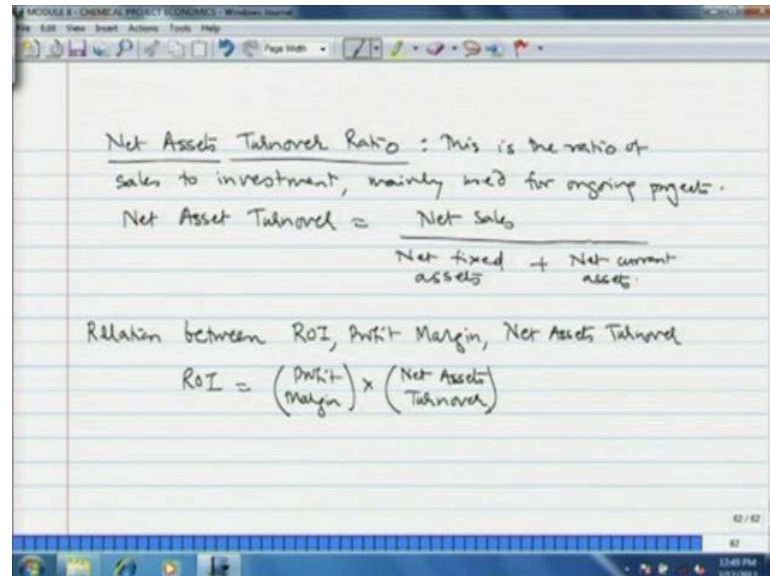 MODULE 8 - CHEMICAL PROJECT ECONOMICS - Windows Journal
File Edit View Insert Actions Tools Help
Page Width
Net Assets Turnover Ratio : This is the ratio of
sales to investment, mainly used for ongoing projects.
Net Asset Turnover = Net Sales
Net fixed assets + Net current assets.
Relation between ROI, Profit Margin, Net Assets Turnover
ROI = (Profit Margin) × (Net Assets Turnover)
62 / 62
62
12:49 PM